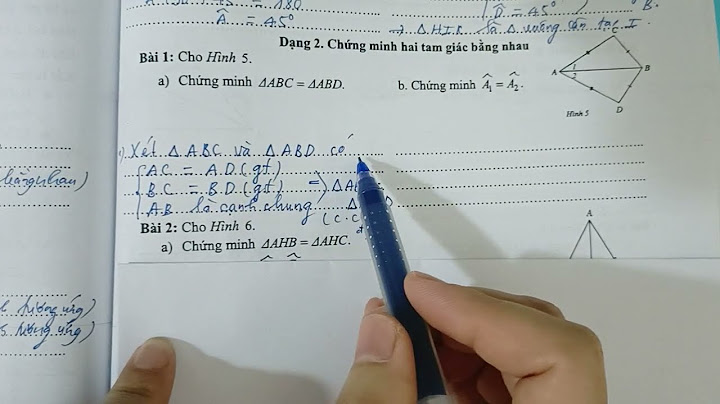 = 180
Â = 45° D̂ = 45° B.
⇒ Δ HIK là Δ vuông cân tại I.
Dạng 2. Chứng minh hai tam giác bằng nhau
Bài 1: Cho Hình 5.
a) Chứng minh ΔABC = ΔABD. b. Chứng minh Â₁ = Â₂.
C
A 1 2 B
D
Hình 5
Xét Δ ABC và Δ ABD có
AC = AD (gt)
BC = BD (gt) ⇒ Δ
AB là cạnh chung Δ
(c.c
Bài 2: Cho Hình 6.
a) Chứng minh ΔAHB = ΔAHC.
A
tương ứng)
tương ứng)